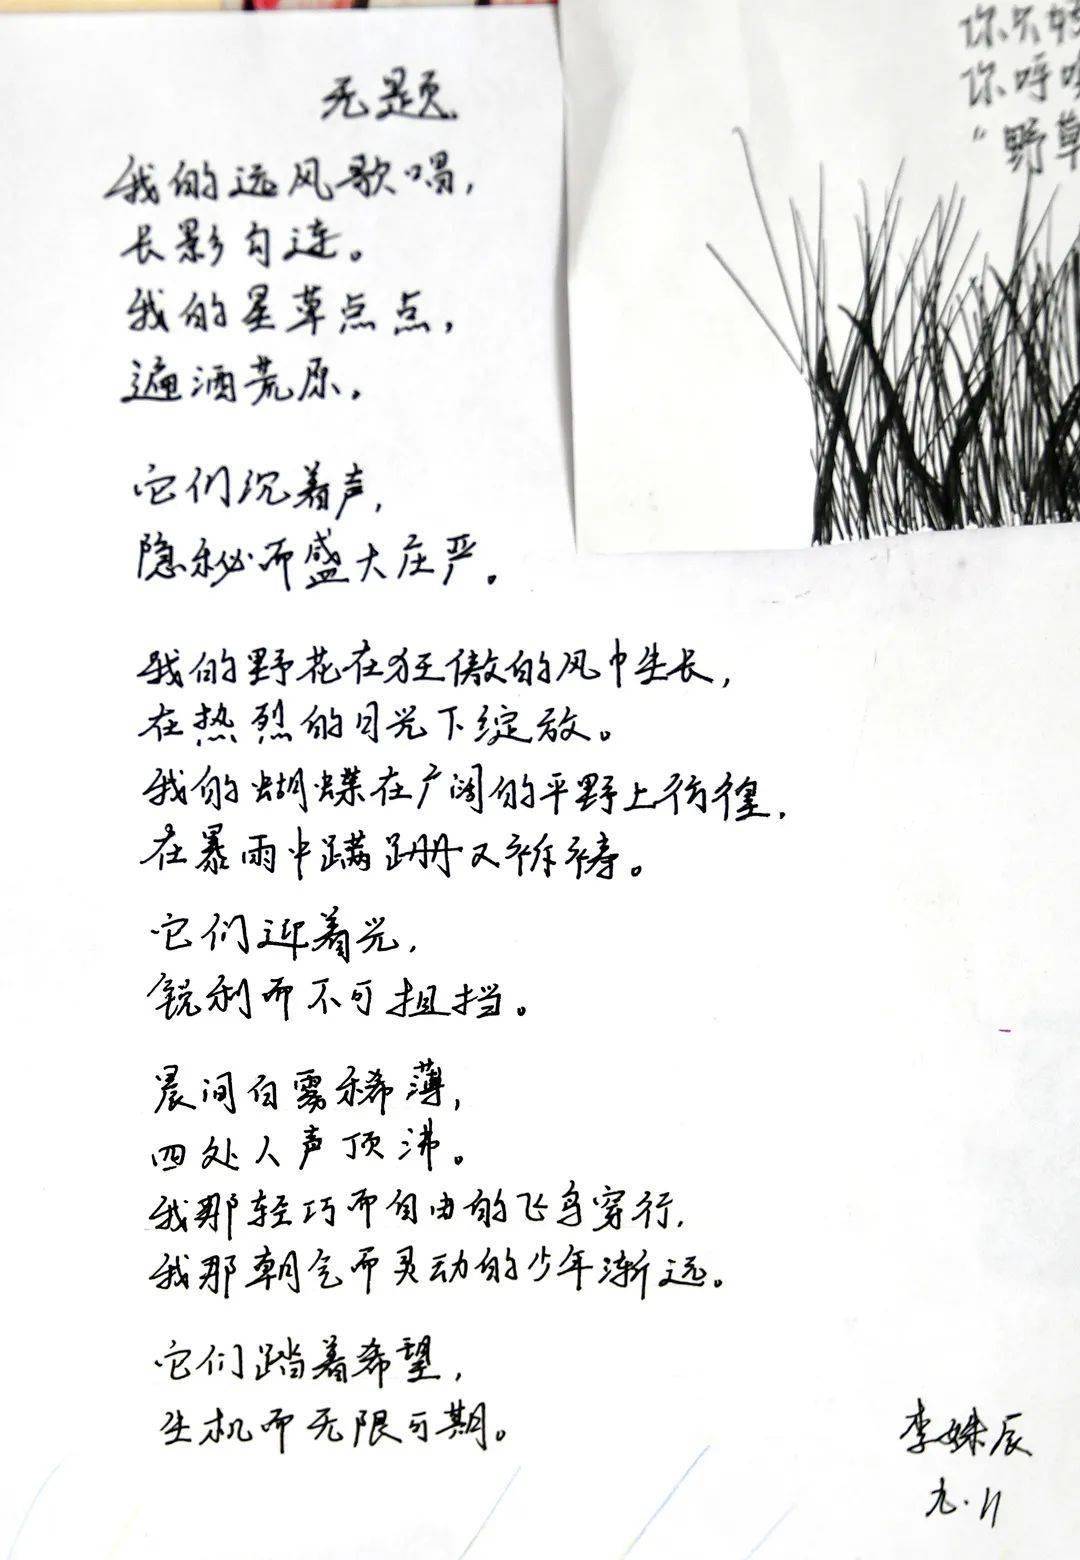 无题
我的远风歌唱，
长影勾连。
我的星草点点，
遍洒荒原。
它们沉着声，
隐秘而盛大庄严。
我的野花在狂傲的风中生长，
在热烈的日光下绽放。
我的蝴蝶在广阔的平野上彷徨，
在暴雨中蹒跚又祈祷。
它们迎着光，
锐利而不可阻挡。
晨间白雾稀薄，
四处人声顶沸。
我那轻巧而自由的飞鸟穿行，
我那朝气而灵动的少年渐远。
它们踏着希望，
生机而无限可期。
李姝辰
九.11
你
你呼
“野草